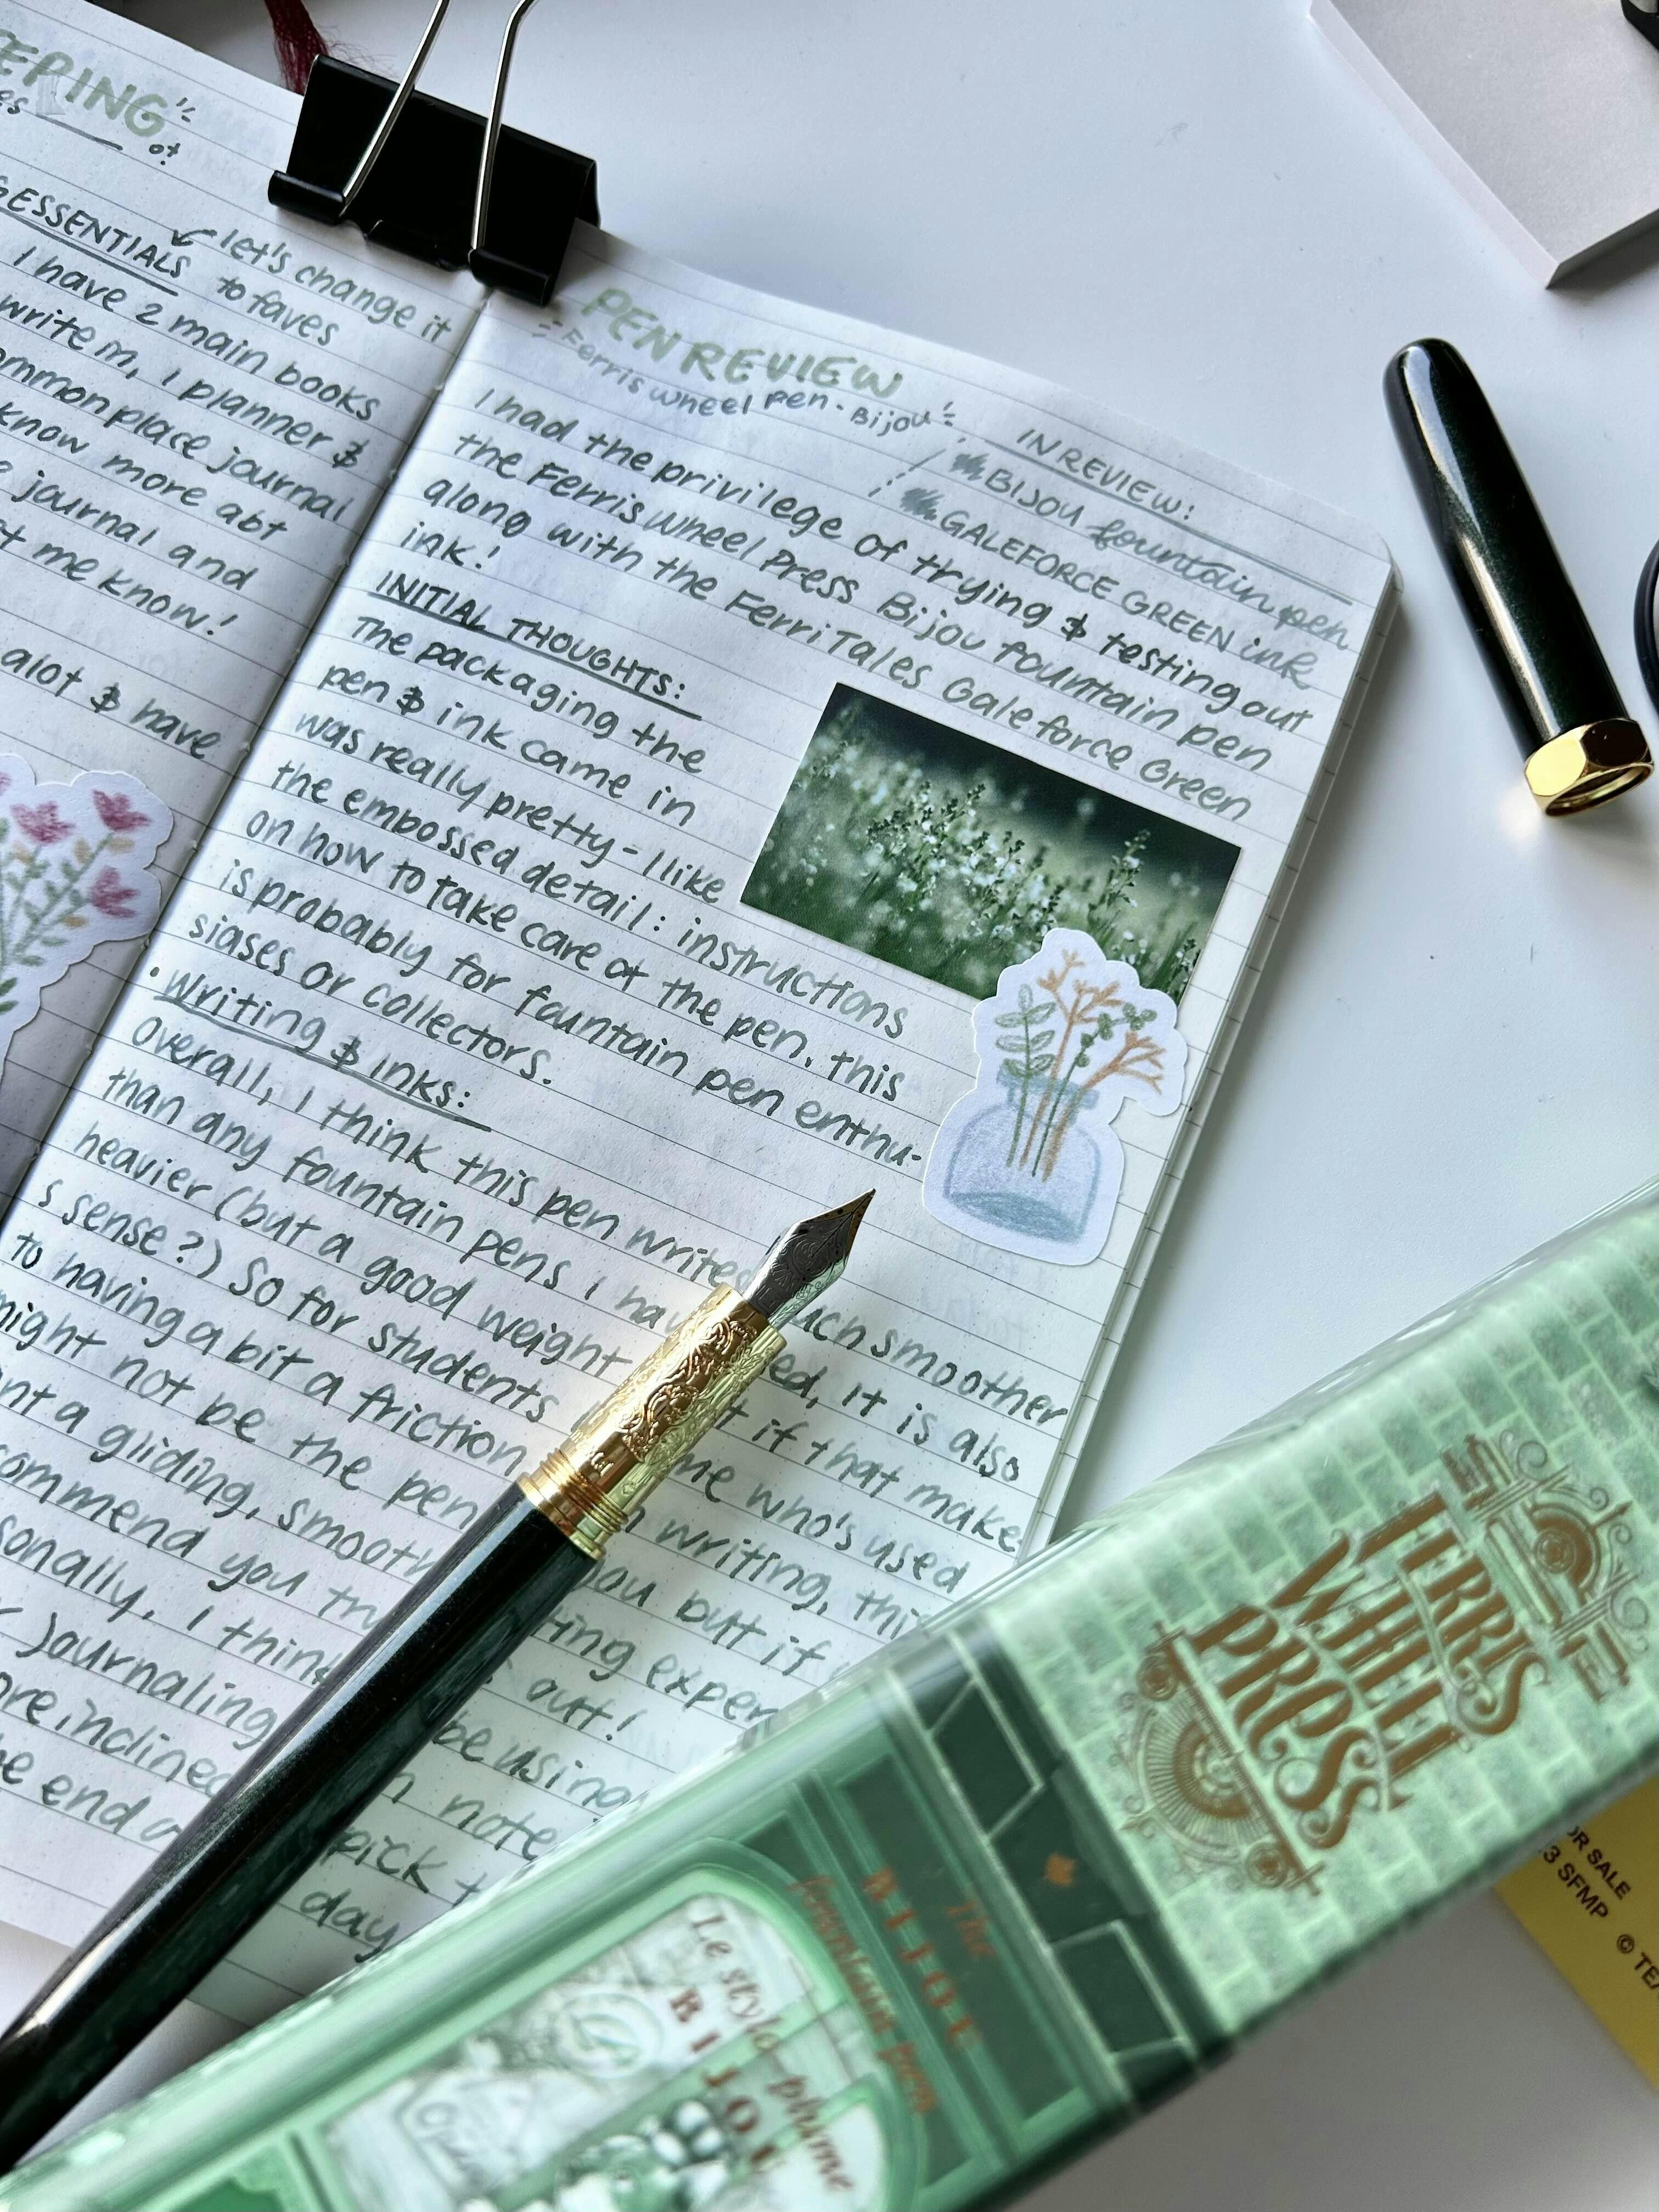 EEPING
ESSENTIALS
let's change it
to faves
I have 2 main books
write in, 1 planner &
commonplace journal
know more abt
journal and
me know!
alot & have
PEN REVIEW
Ferris wheel pen - Bijou
IN REVIEW:
BIJOU fountain pen
GALEFORCE GREEN ink
I had the privilege of trying & testing out
the Ferris Wheel Press Bijou fountain pen
along with the FerriTales Galeforce Green
ink!
INITIAL THOUGHTS:
The packaging the
pen & ink came in
was really pretty - I like
the embossed detail: instructions
on how to take care of the pen. this
is probably for fountain pen enthu-
siases or collectors.
• Writing & inks:
Overall, I think this pen writes much smoother
than any fountain pens I have, it is also
heavier (but a good weight if that make
s sense?) So for students who's used
to having a bit a friction writing, this
might not be the pen you but if
a gliding, smooth experience
commend you try out!
sonally, I think be using
journaling note
ore inclined pick
he end day
FERRIS
WHEEL
PRESS
The
BIJOU
fountain pen
Le stylo-plume
BIJOU
OR SALE
3 SFMP © TEA